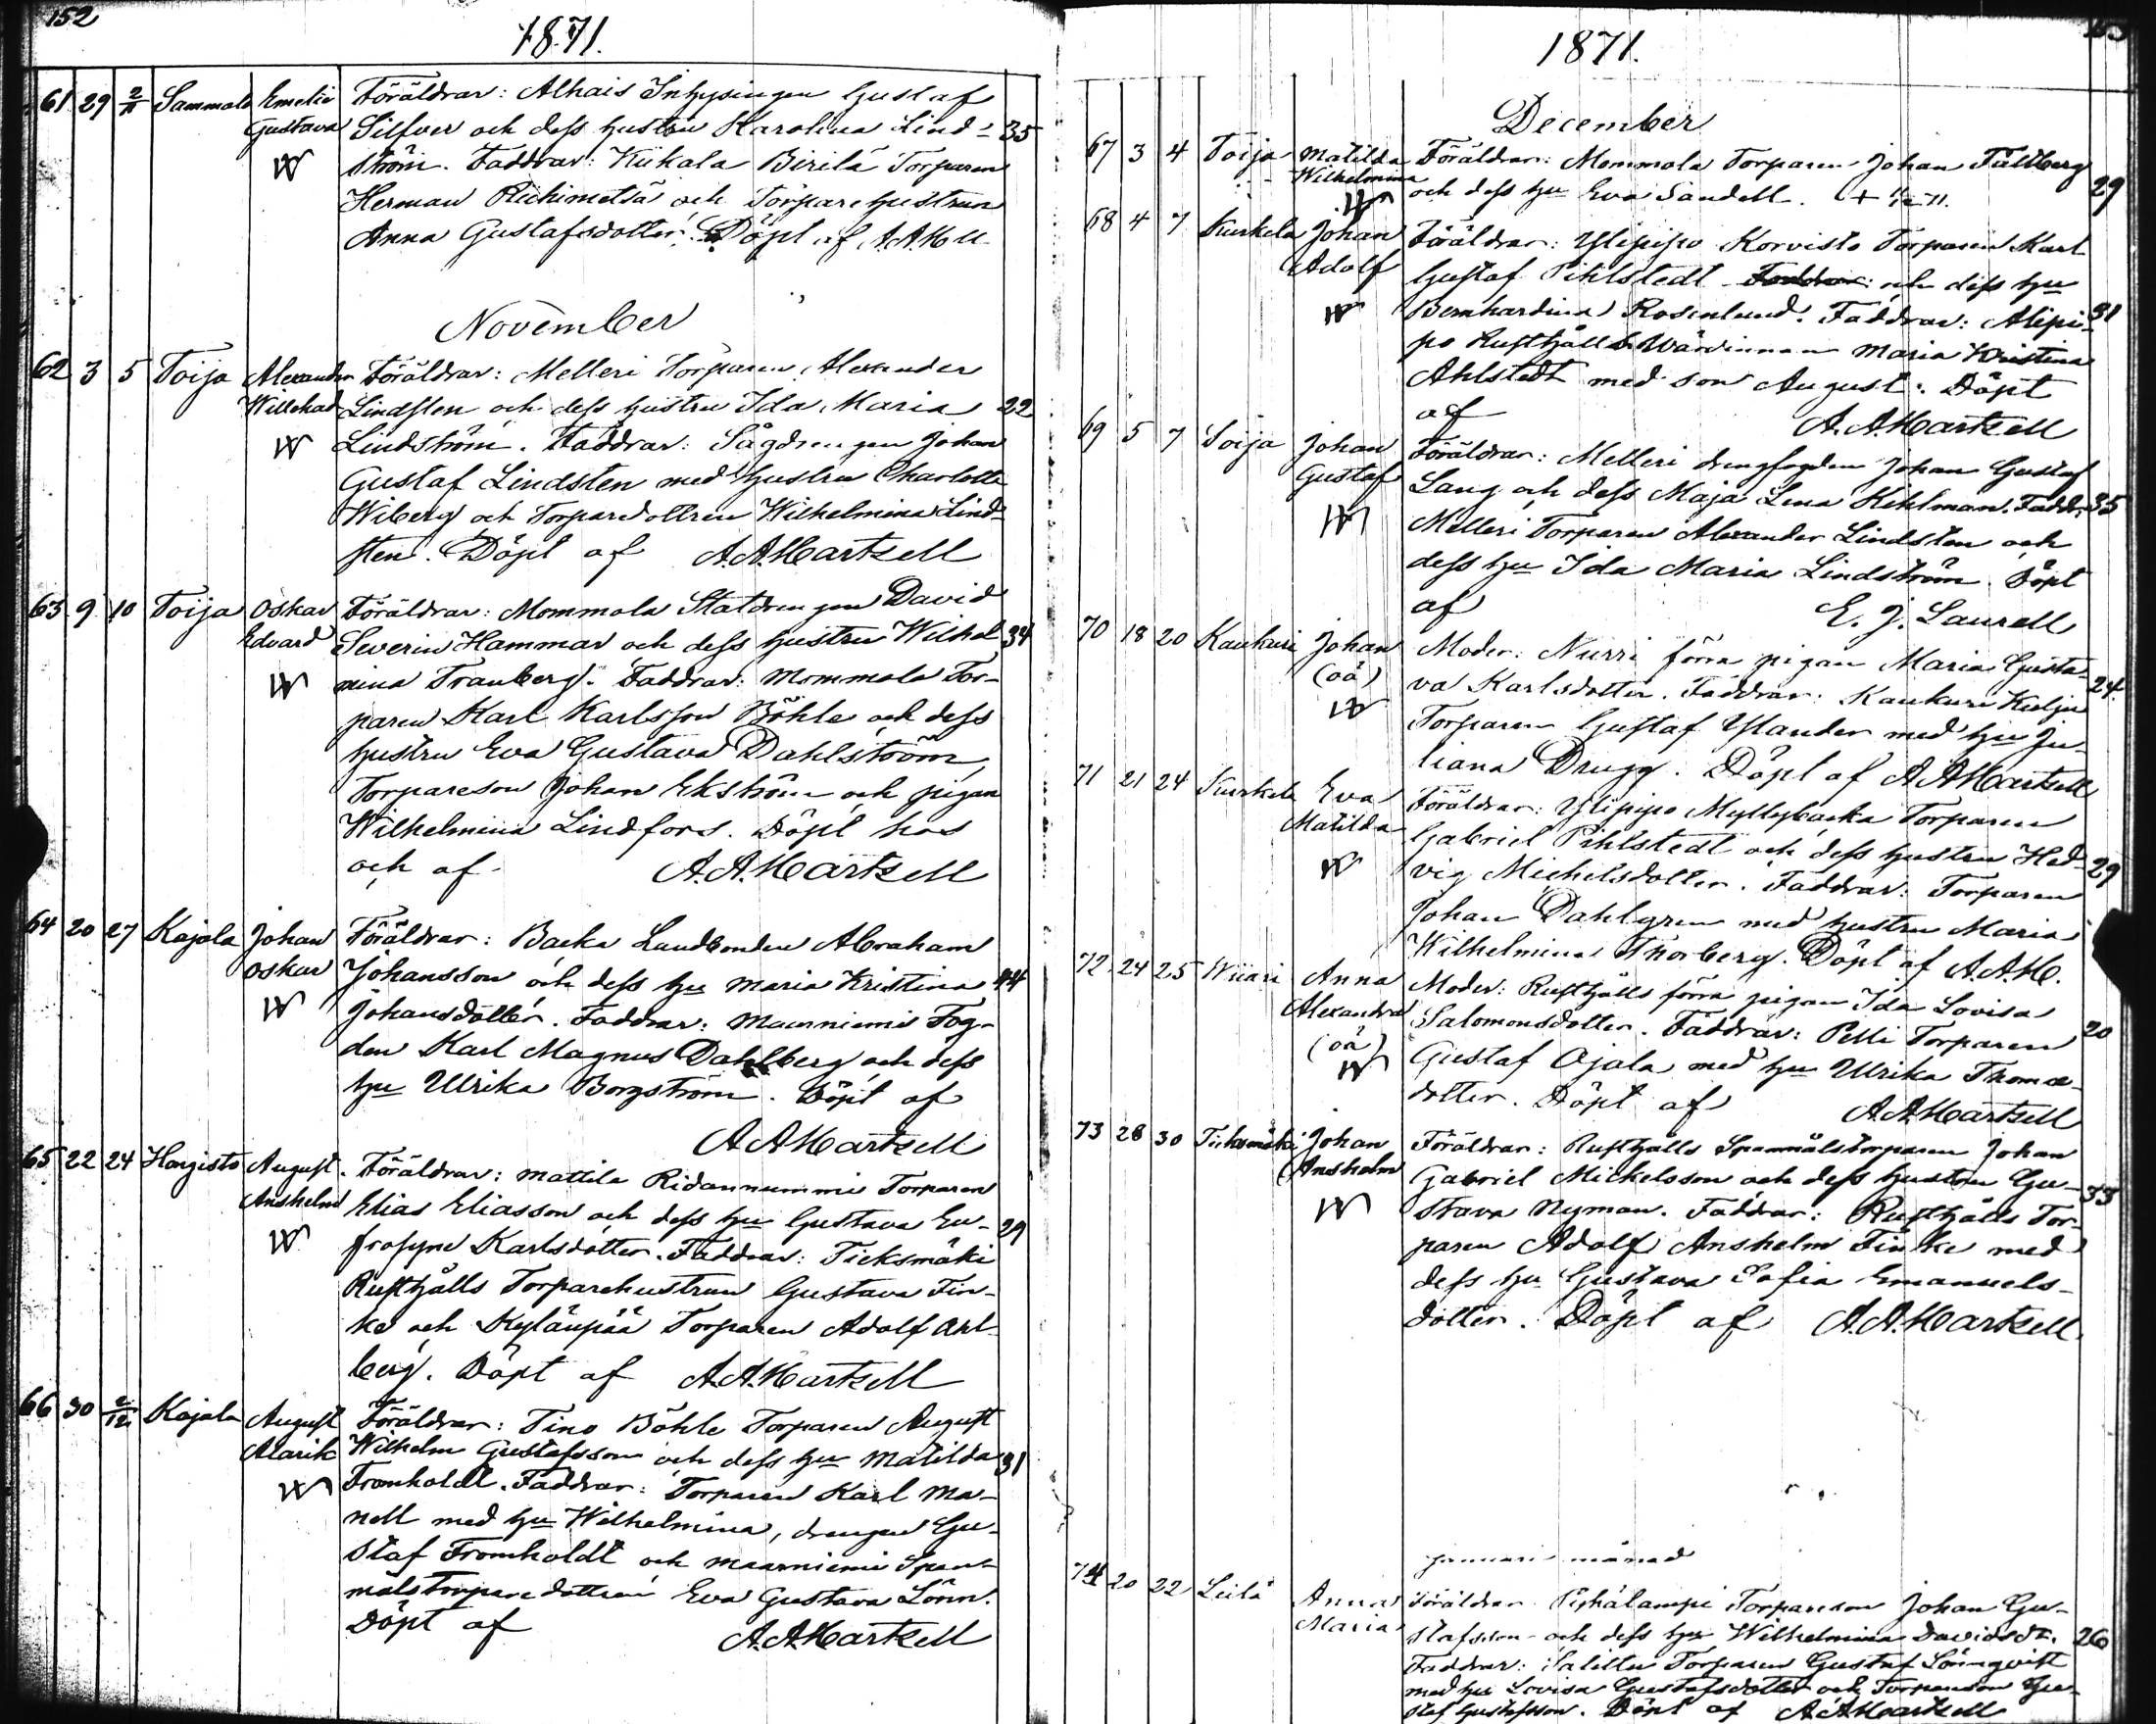 152
1871.
61 29 2/11 Sammalo Emelie Föräldrar: Alhais Inhysingen Gustaf
Gustava Silfver och dess hustru Karolina Lind- 35
ström. Faddrar: Kiikala Birilä Torparen
Herman Riihimetsä och Torparehustrun
Anna Gustafsdotter. Döpt af A.A.H
November
62 3 5 Toija Alexander Föräldrar: Melleri Torparen Alexander
Willehad Lindsten och dess hustru Ida Maria 22
Lindström. Faddrar: Sågdrengen Johan
Gustaf Lindsten med hustru Charlotta
Wiberg och Torparedottren Wilhelmina Lind-
sten. Döpt af A.A.Hartzell
63 9 10 Toija Oskar Föräldrar: Mommola Statdrengen David
Edvard Severin Hammar och dess hustru Wilhel 34
mina Tranberg. Faddrar: Mommola Tor-
paren Karl Karlsson Böhle och dess
hustru Eva Gustava Dahlström,
Torpareson Johan Ekström och pigan
Wilhelmina Lindfors. Döpt hos
och af A.A.Hartzell
64 20 27 Kajala Johan Föräldrar: Backa Landbonden Abraham
Oskar Johansson och dess hu Maria Kristina 44
Johansdotter. Faddrar: Maurniemi Fog-
den Karl Magnus Dahlberg och dess
hu Ulrika Borgström. Döpt af
A.A.Hartzell
65 22 24 Horgisto August Föräldrar: Mattila Ridannummi Torparen
Anshelm Elias Eliasson och dess hu Gustava Eu- 29
frosyne Karlsdotter. Faddrar: Tieksmäki
Rusthålls Torparehustrun Gustava Fin-
ke och Kyläupää Torparen Adolf Ahl-
berg. Döpt af A.A.Hartzell
66 30 2/12 Kajala August Föräldrar: Tino Böhle Torparen August
Alarik Wilhelm Gustafsson och dess hu Matilda 31
Fromholdt. Faddrar: Torparen Karl Ma-
nell med hu Wilhelmina, drengen Gu-
staf Fromholdt och Maarniemi Span-
målstorparedottren Eva Gustava Lönn.
Döpt af A.A.Hartzell
1871.
December
67 3 4 Toija Matilda Föräldrar: Mommola Torparen Johan Fältberg
Wilhelmina och dess hu Eva Sandell. 29
68 4 7 Kurkela Johan Föräldrar: Ylipipo Korvisto Torparen Karl
Adolf Gustaf Pihlstedt Faddrar: och dess hu
Bernhardina Rosenlund. Faddrar: Alipi- 31
po Rusthålls Wärdinnan Maria Kristina
Ahlstedt med son August. Döpt
af A.A.Hartzell
69 5 7 Toija Johan Föräldrar: Melleri drengfogden Johan Gustaf
Gustaf Lang och dess Maja Lena Kihlman. Faddr: 35
Melleri Torparen Alexander Lindsten och
dess hu Ida Maria Lindström. Döpt
af E. J. Laurell
70 18 20 Kaukuri Johan Moder: Nurri förra pigan Maria Gusta-
(oä) va Karlsdotter. Faddrar: Kaukuri Kulju 24
Torparen Gustaf Ylander med hu Ju-
liana Drugg. Döpt af A.A.Hartzell
71 21 24 Kurkela Eva Föräldrar: Ylipipo Myllybacka Torparen
Matilda Gabriel Pihlstedt och dess hustru Hed- 29
vig Michelsdotter. Faddrar: Torparen
Johan Dahlgren med hustru Maria
Wilhelmina Thorberg. Döpt af A.A.H.
72 24 25 Wiiari Anna Moder: Rusthålls förra pigan Ida Lovisa
Alexandra Salomonsdotter. Faddrar: Pelli Torparen 20
(oä) Gustaf Ojala med hu Ulrika Thomæ-
dotter. Döpt af A.A.Hartzell
73 28 30 Tieksmäki Johan Föräldrar: Rusthålls Spannmålstorparen Johan
Anshelm Gabriel Mickelsson och dess hustru Gu- 33
stava Nyman. Faddrar: Rusthålls Tor-
paren Adolf Anshelm Finke med
dess hu Gustava Sofia Emanuels-
dotter. Döpt af A.A.Hartzell.
Januari månad
74 20 22 Leilä Anna Föräldrar: Torpareson Johan Gu-
Maria stafsson och dess hu Wilhelmina Davidsdtr. 26
Faddrar: Torparen Gustaf Lönnqvist
med hu Lovisa Gustafsdotter och Torpareson Gu-
staf Gustafsson. Döpt af A.A.Hartzell